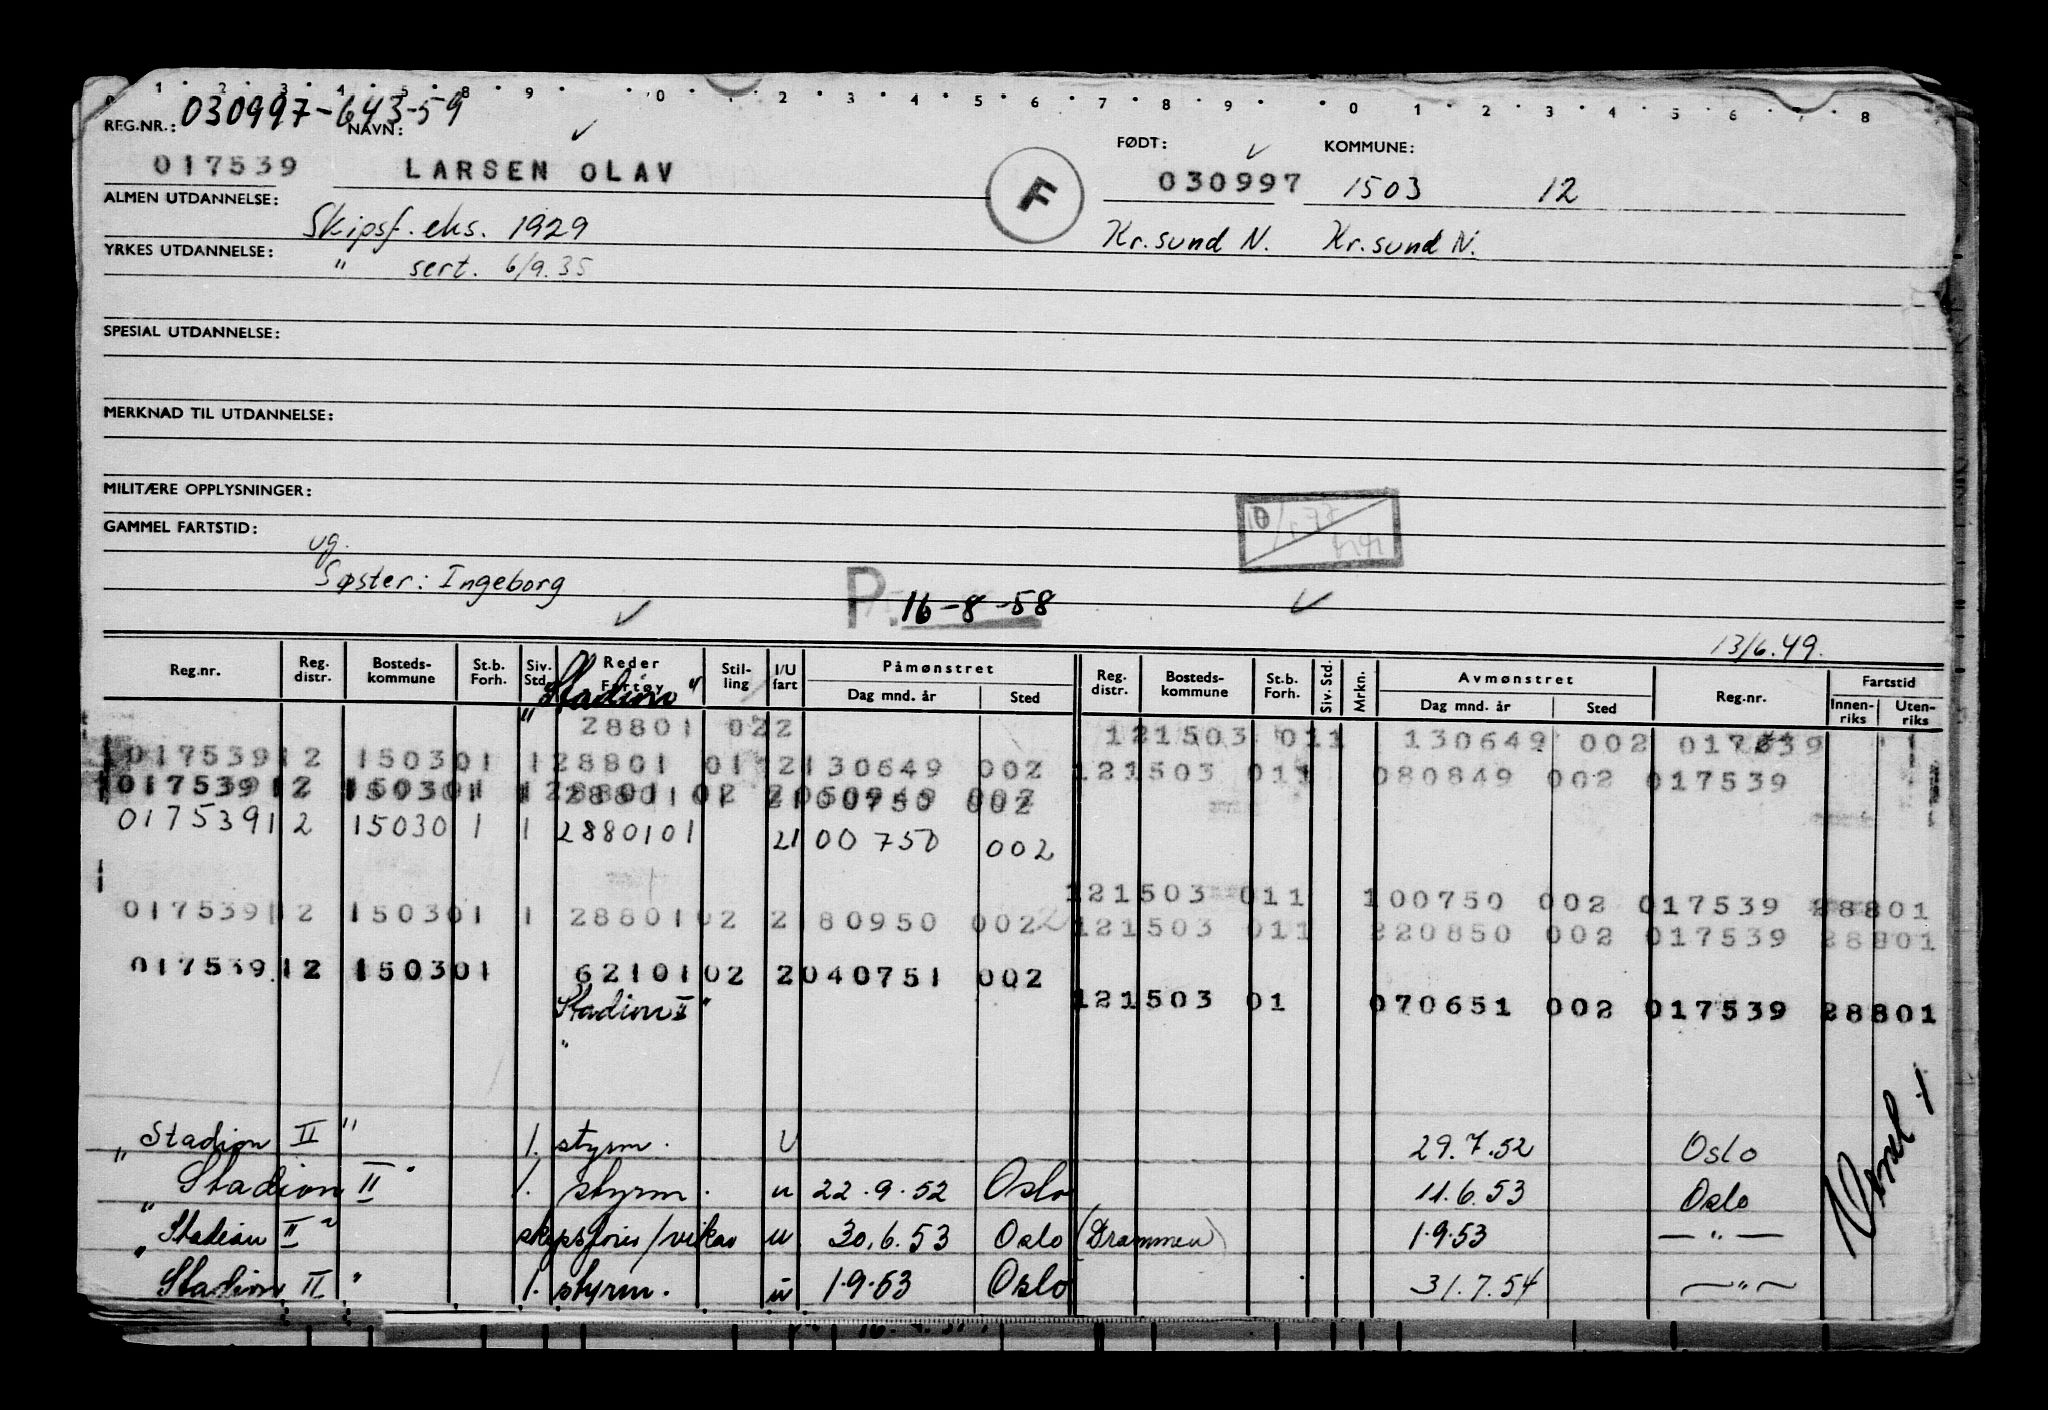 1 2 3 4 5 8 9 0 2 3 4 5 6 7 8 9 0 1 2 3 4 5 6 8
REG.NR.: 030997-643-59 NAVN: FØDT: KOMMUNE:
017539 LARSEN OLAV F 030997 1503 12
ALMEN UTDANNELSE: Skipsf. eks. 1929 Kr.sund N. Kr.sund N.
YRKES UTDANNELSE: " sert. 6/9.35
SPESIAL UTDANNELSE:
MERKNAD TIL UTDANNELSE:
MILITÆRE OPPLYSNINGER:
GAMMEL FARTSTID:
ug.
Søster: Ingeborg
P. 16-8-58
13/6.49.
Reg.nr. Reg. distr. Bosteds-kommune St.b. Forh. Siv. Std. Reder Fartøy Stil-ling I/U fart Påmønstret Dag mnd. år Sted Reg. distr. Bosteds-kommune St.b. Forh. Siv. Std. Mrkn. Avmønstret Dag mnd. år Sted Reg.nr. Fartstid Innen-riks Uten-riks
"Stadion"
28801 022 121503 011 130649 002 017539
017539 12 150301 1 28801 01 2 130649 002 121503 011 080849 002 017539
017539 12 150301 1 002
017539 12 150301 1 2880101 2 100750 002
121503 011 100750 002 017539 28801
017539 12 150301 1 28801 02 2 180950 002 121503 011 220850 002 017539 28801
017539 12 150301 62101 02 2 040751 002
"Stadion II" 121503 01 070651 002 017539 28801
"Stadion II" 1. styrm. U 29.7.52 Oslo
"Stadion II" 1. styrm. u 22.9.52 Oslo 11.6.53 Oslo
"Stadion II" skipsfører/vikar u 30.6.53 Oslo (Drammen) 1.9.53 — " —
"Stadion II" 1. styrm. u 1.9.53 Oslo 31.7.54 — " —